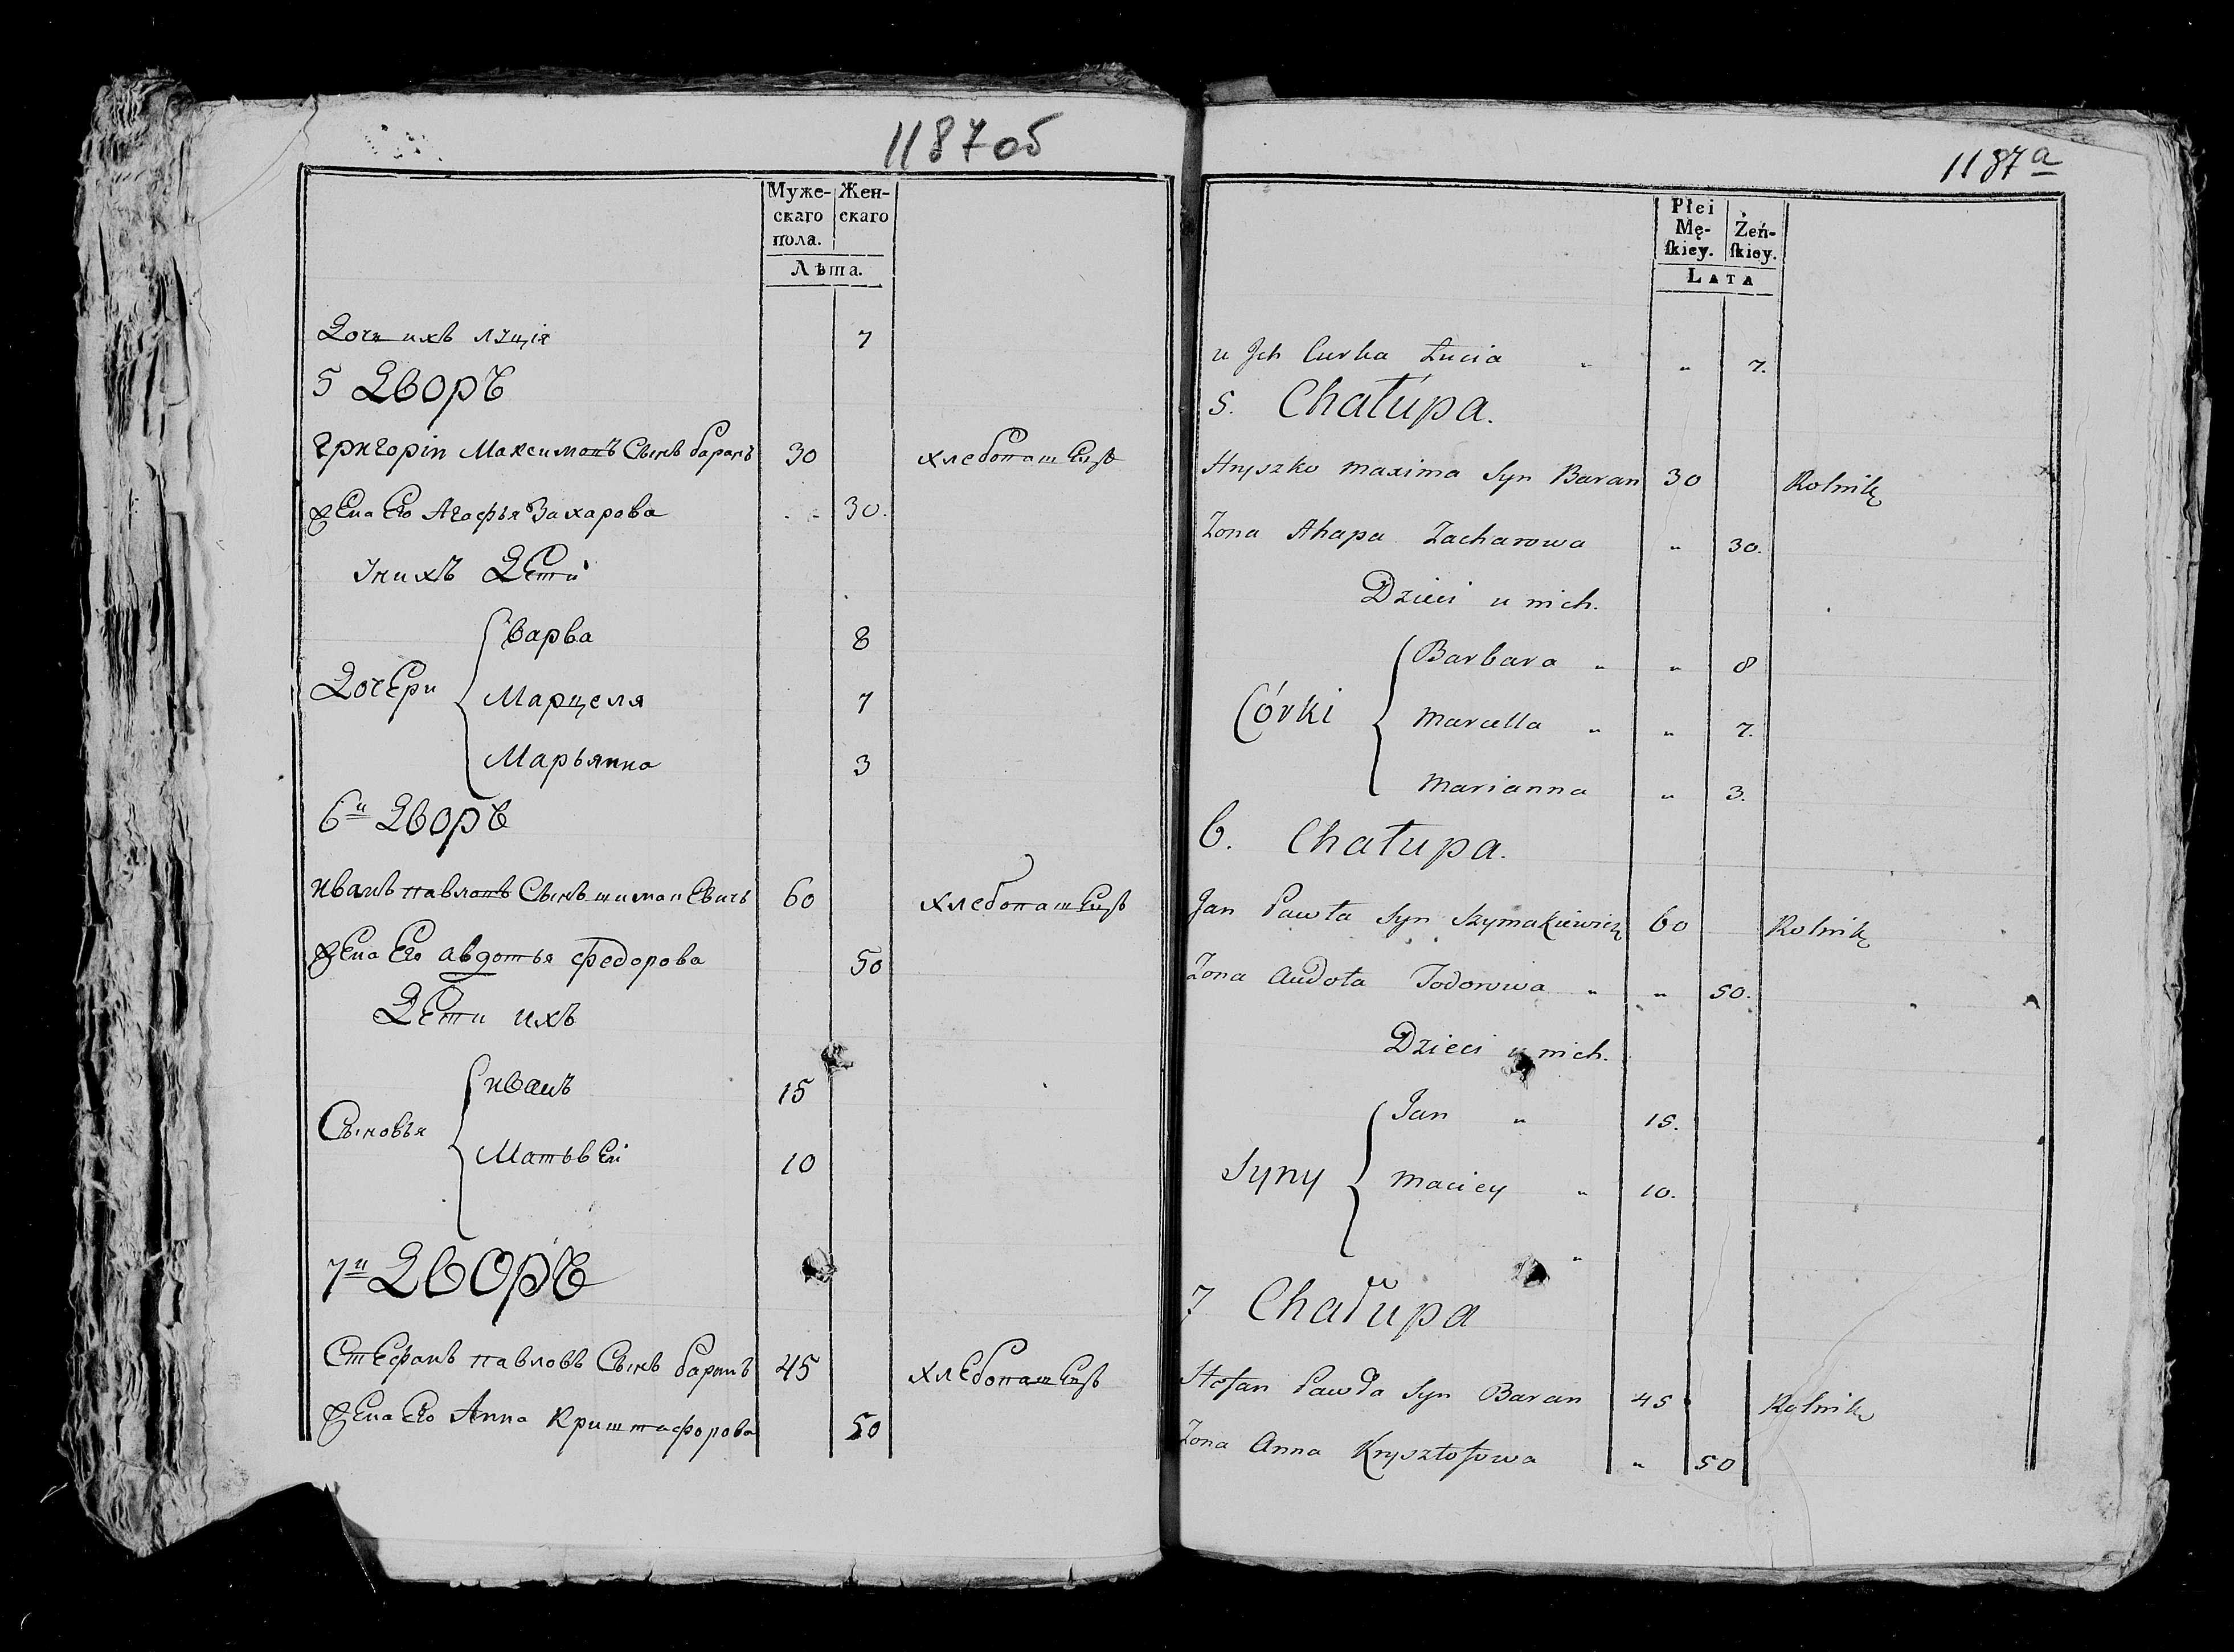 1187об
Муже-
скаго
пола.
Жен-
скаго
Лѣта.
Дочь ихъ Луція 7
5 Дворъ
Григорій Максимовъ Сынъ баранъ 30 хлебопашецъ
жена Его Агафья Захарова 30.
У нихъ Дети
Дочери
Варва 8
Марцеля 7
Марьянна 3
6й Дворъ
Иванъ павловъ Сынъ шимакевичъ 60 хлебопашецъ
жена Его авдотья федорова 50
Дети ихъ
Сыновья
иванъ 15
Матьвей 10
7й Дворъ
Стефанъ павловъ Сынъ баранъ 45 хлебопашецъ
жена Его Анна Криштафорова 50
1187a
Płci
Mę-
ſkiey.
Żeń-
ſkiey.
LATA
u Jch Curka Łucia " " 7.
5. Chałupa.
Hryszko Maxima Syn Baran 30 Rolnik
Zona Ahapa Zacharowa " 30.
Dzieci u nich.
Córki
Barbara " " 8
Marcella " " 7.
Marianna " 3.
6. Chałupa.
Jan Pawła Syn Szymakiewicz 60 Rolnik
Zona Audota Todorowa " " 50.
Dzieci u nich.
Syny
Jan " 15.
Maciey " 10.
"
7 Chałupa
Stefan Pawła Syn Baran 45 Rolnik
Zona Anna Krysztofowa " 50